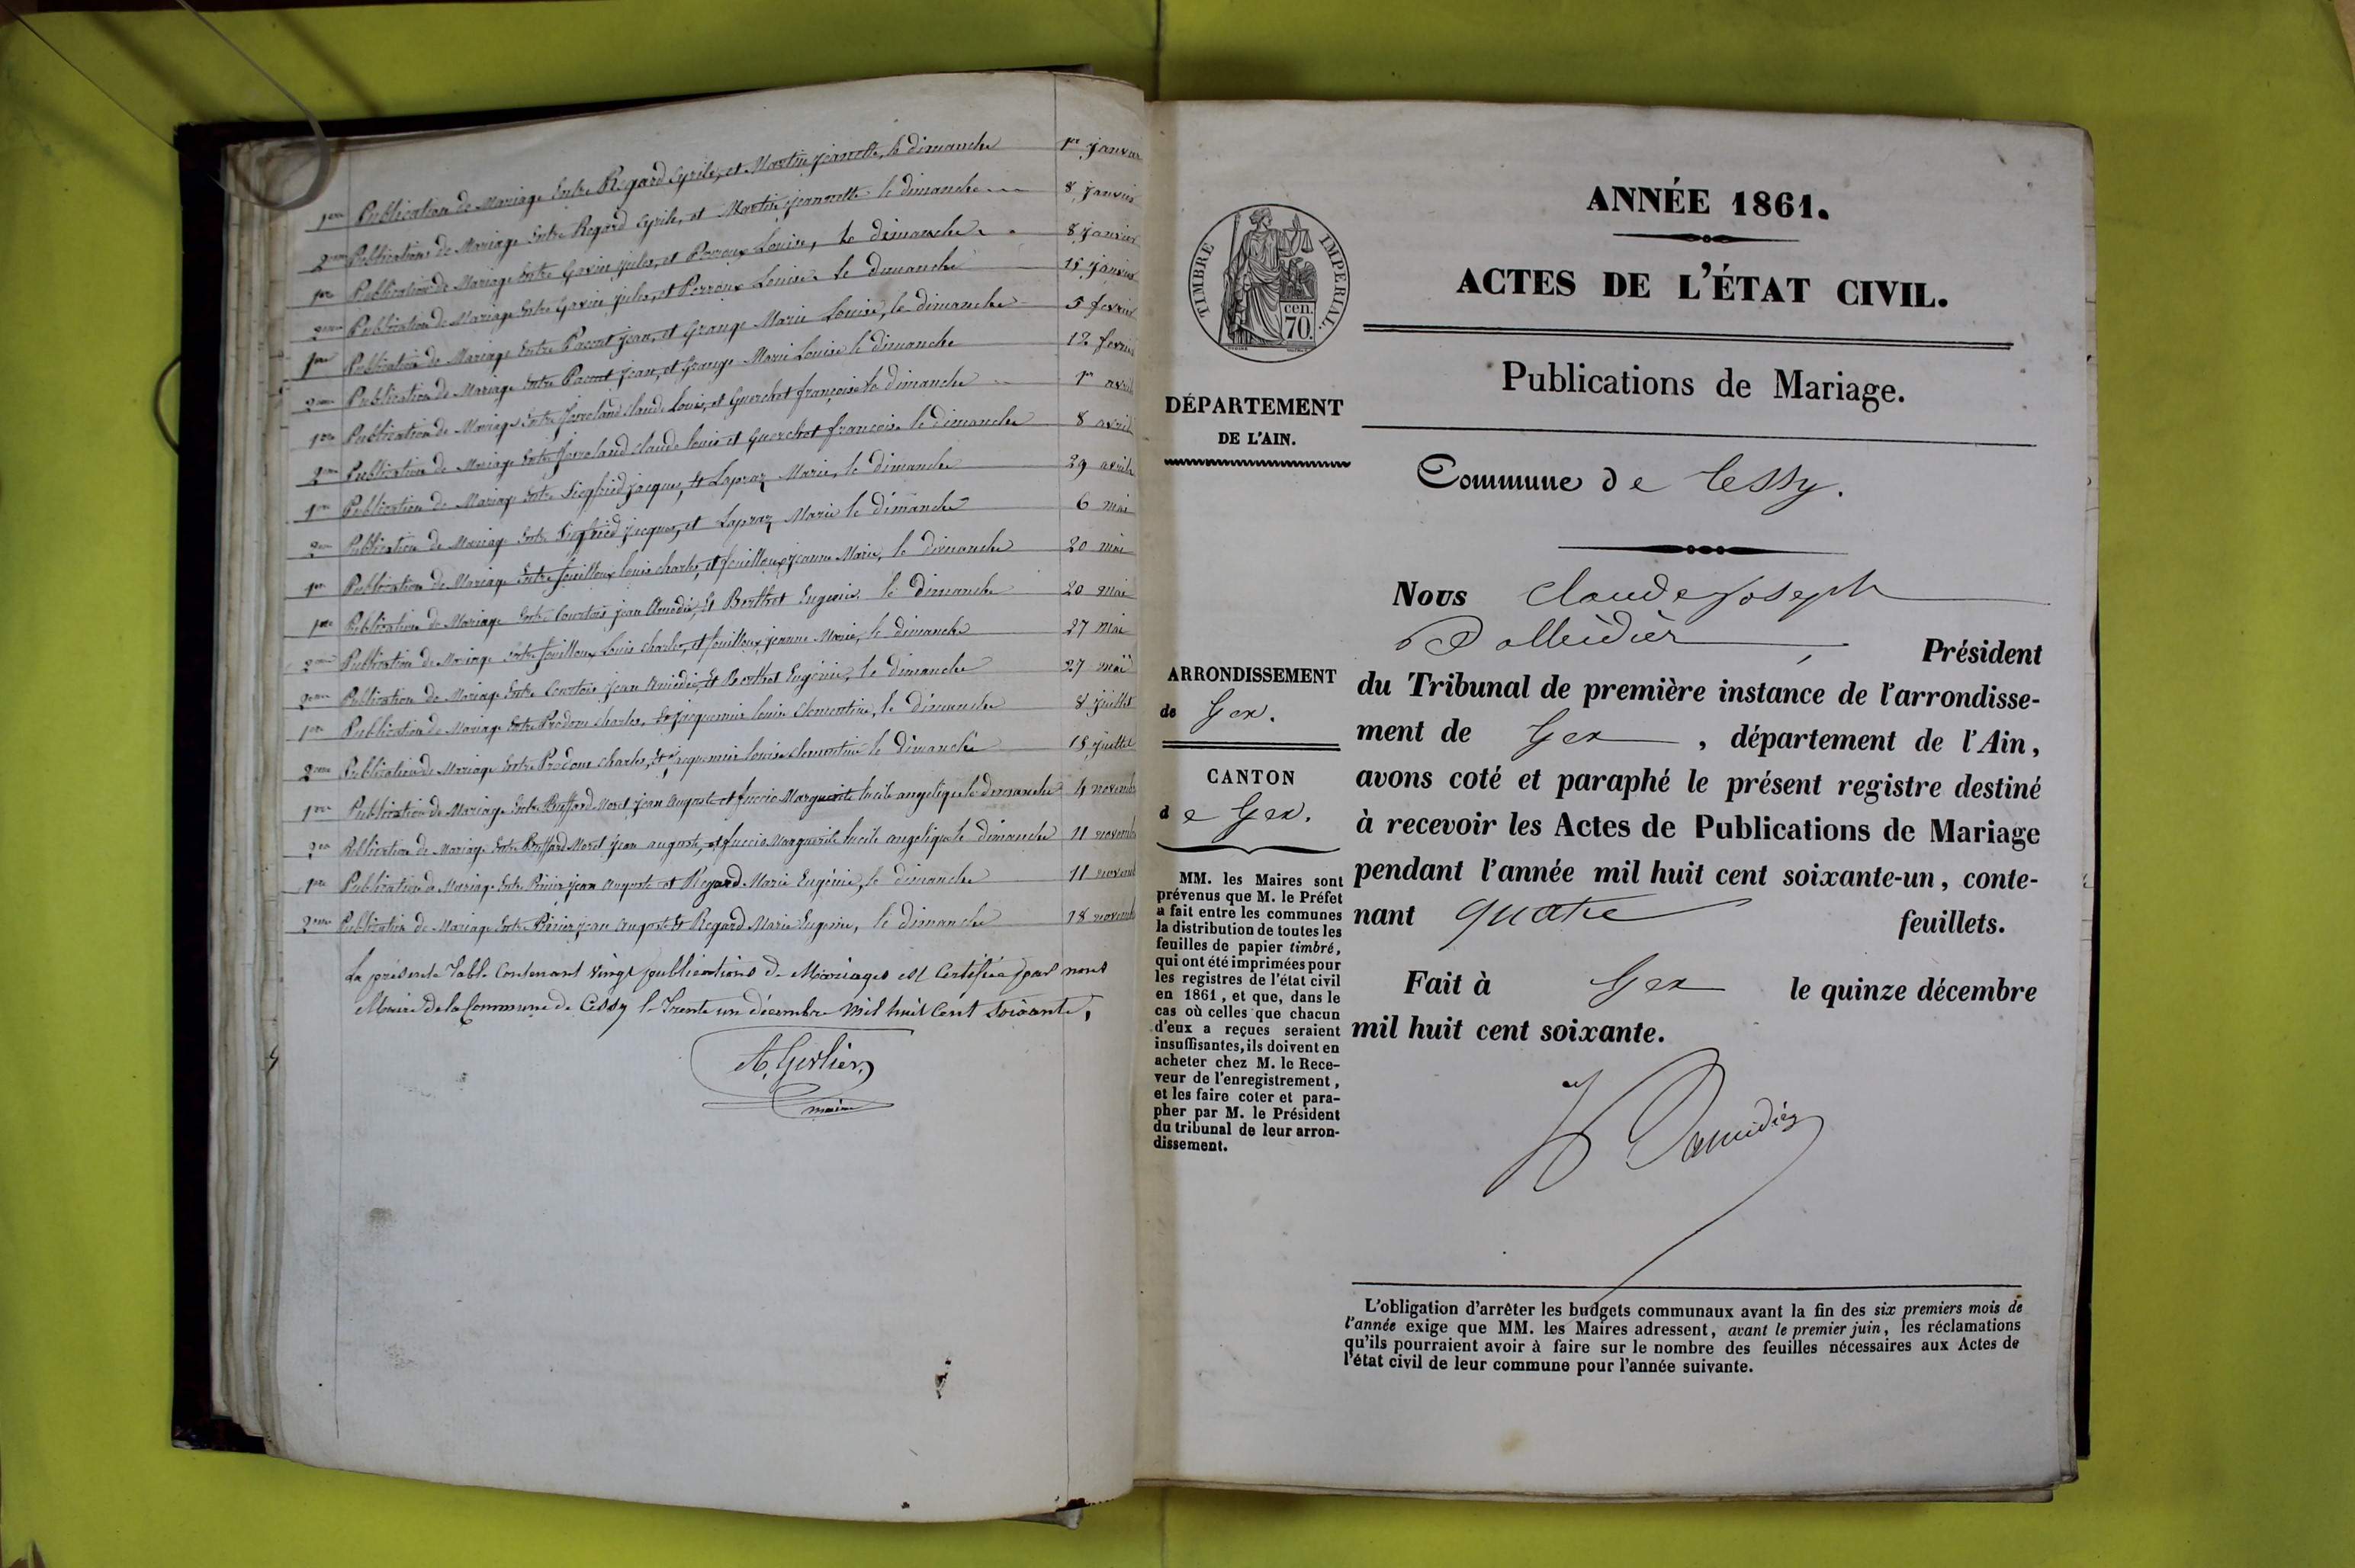 1ere Publication de Mariage Entre Regard Cyrile, et Martin Jeannette, le dimanche 1er Janvier
2eme Publication de Mariage Entre Regard Cyrile, et Martin Jeannette le dimanche 8 Janvier
1ere Publication de Mariage Entre Jules, et Perroux Louise, le dimanche 8 Janvier
2eme Publication de Mariage Entre Jules, et Perroux Louise le dimanche 15 Janvier
1ere Publication de Mariage Entre Jean, et Grange Marie Louise, le dimanche 5 fevrier
2eme Publication de Mariage Entre Jean, et Grange Marie Louise le dimanche 12 fevrier
1ere Publication de Mariage Entre Claude Louis, et Guerchet françoise le dimanche 1er avril
2eme Publication de Mariage Entre Claude Louis et Guerchet françoise le dimanche 8 avril
1ere Publication de Mariage Entre Siegfried Jacques, et Lapraz Marie, le dimanche 29 avril
2eme Publication de Mariage Entre Siegfried Jacques, et Lapraz Marie le dimanche 6 mai
1ere Publication de Mariage Entre fouilloux Louis Charles, et fouilloux Jeanne Marie, le dimanche 20 mai
1ere Publication de Mariage Entre Courtois Jean Amédée, Et Berthet Eugénie, le dimanche 20 mai
2eme Publication de Mariage Entre fouilloux Louis Charles, et fouilloux Jeanne Marie, le dimanche 27 mai
2eme Publication de Mariage Entre Courtois Jean Amédée, Et Berthet Eugénie, le dimanche 27 mai
1ere Publication de Mariage Entre Prodon Charles, Et Jacquemier Louise Clementine, le dimanche 8 Juillet
2eme Publication de Mariage Entre Prodon Charles, Et Jacquemier Louise Clementine le dimanche 15 Juillet
1ere Publication de Mariage Entre Buffard Morel Jean Auguste et Marguerite Lucile angelique le dimanche 4 novemb
2eme Publication de Mariage Entre Buffard Morel Jean auguste, et Marguerite Lucile angelique le dimanche 11 novemb
1ere Publication de Mariage Entre Jean Auguste et Regard Marie Eugénie, le dimanche 11 novemb
2eme Publication de Mariage Entre Jean Auguste Et Regard Marie Eugénie, le dimanche 18 novemb
La présente Table Contenant vingt publications de Mariages est Certifiée par nous
Maire De la Commune de Cessy le Trente un décembre Mil huit Cent Soixante,
A. Gerlier
maire
ANNÉE 1861.
ACTES DE L'ÉTAT CIVIL.
Publications de Mariage.
Commune de Cessy.
TIMBRE IMPERIAL.
cen.
70.
DÉPARTEMENT
DE L'AIN.
ARRONDISSEMENT
de Gex.
CANTON
de Gex.
MM. les Maires sont
prévenus que M. le Préfet
a fait entre les communes
la distribution de toutes les
feuilles de papier timbré,
qui ont été imprimées pour
les registres de l'état civil
en 1861, et que, dans le
cas où celles que chacun
d'eux a reçues seraient
insuffisantes, ils doivent en
acheter chez M. le Rece-
veur de l'enregistrement,
et les faire coter et para-
pher par M. le Président
du tribunal de leur arron-
dissement.
Nous Claude Joseph
Président
du Tribunal de première instance de l'arrondisse-
ment de Gex, département de l'Ain,
avons coté et paraphé le présent registre destiné
à recevoir les Actes de Publications de Mariage
pendant l'année mil huit cent soixante-un, conte-
nant quatre feuillets.
Fait à Gex le quinze décembre
mil huit cent soixante.
L'obligation d'arrêter les budgets communaux avant la fin des six premiers mois de
l'année exige que MM. les Maires adressent, avant le premier juin, les réclamations
qu'ils pourraient avoir à faire sur le nombre des feuilles nécessaires aux Actes de
l'état civil de leur commune pour l'année suivante.